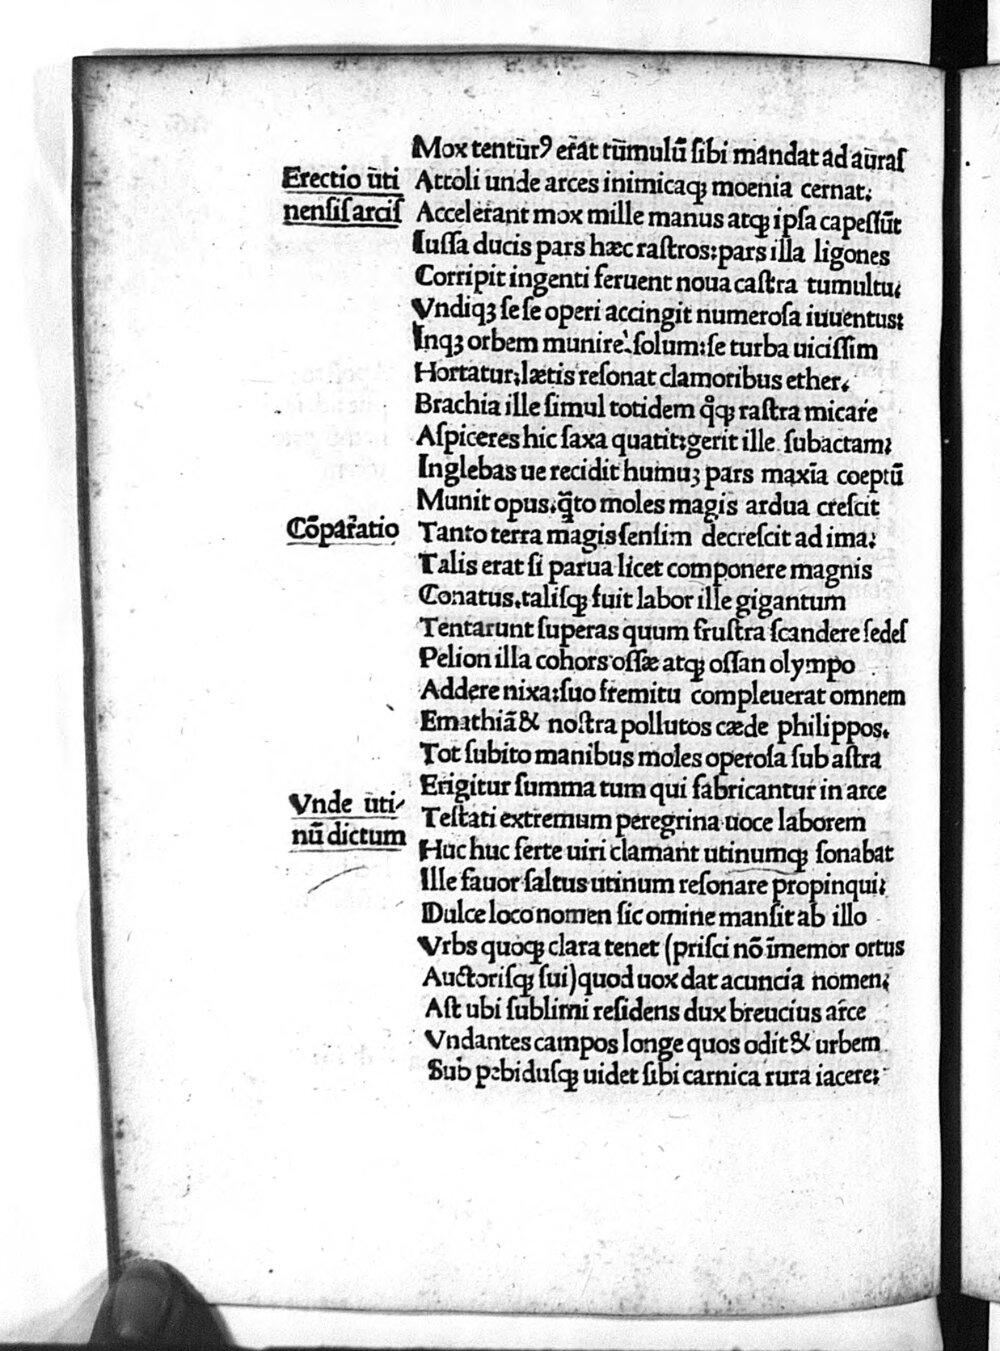 Mox tentur⁹ erat tūmulū ſibi mandat ad auraſ
Erectio ūti
nenſiſ arciſ
Attoli unde arces inimicaqꝫ moenia cernat;
Accelerant mox mille manus atqꝫ ipſa capeſſūt
Iuſſa ducis pars hæc raſtros:pars illa ligones
Corripit ingenti feruent noua caſtra tumultu;
Vndiqꝫ ſe ſe operi accingit numeroſa iuuentus:
Inqꝫ orbem munire ſolum:ſe turba uiciſſim
Hortatur;lætis reſonat clamoribus ether.
Brachia ille ſimul totidem qͦqꝫ raſtra micare
Aſpiceres hic ſaxa quatit:gerit ille ſubactam;
Inglebas ue recidit humuꝫ pars maxīa coeptū
Munit opus.q̄to moles magis ardua creſcit
Cōparatio
Tanto terra magis ſenſim decreſcit ad ima;
Talis erat ſi parua licet componere magnis
Conatus.taliſqꝫ fuit labor ille gigantum
Tentarunt ſuperas quum fruſtra ſcandere ſedeſ
Pelion illa cohors oſſæ atqꝫ oſſan olympo
Addere nixa:ſuo fremitu compleuerat omnem
Emathiā & noſtra pollutos cæde philippos.
Tot ſubito manibus moles operoſa ſub aſtra
Erigitur ſumma tum qui fabricantur in arce
Vnde uti
nū dictum
Teſtati extremum peregrina uoce laborem
Huc huc ferte uiri clamant utinumqꝫ ſonabat
Ille fauor ſaltus utinum reſonare propinqui;
Dulce loco nomen ſic omine manſit ab illo
Vrbs quoqꝫ clara tenet (priſci nō īmemor ortus
Auctoriſqꝫ ſui) quod uox dat acuncia nomen;
Aſt ubi ſublimi reſidens dux breucius arce
Vndantes campos longe quos odit & urbem
Sub pedibuſqꝫ uidet ſibi carnica rura iacere: